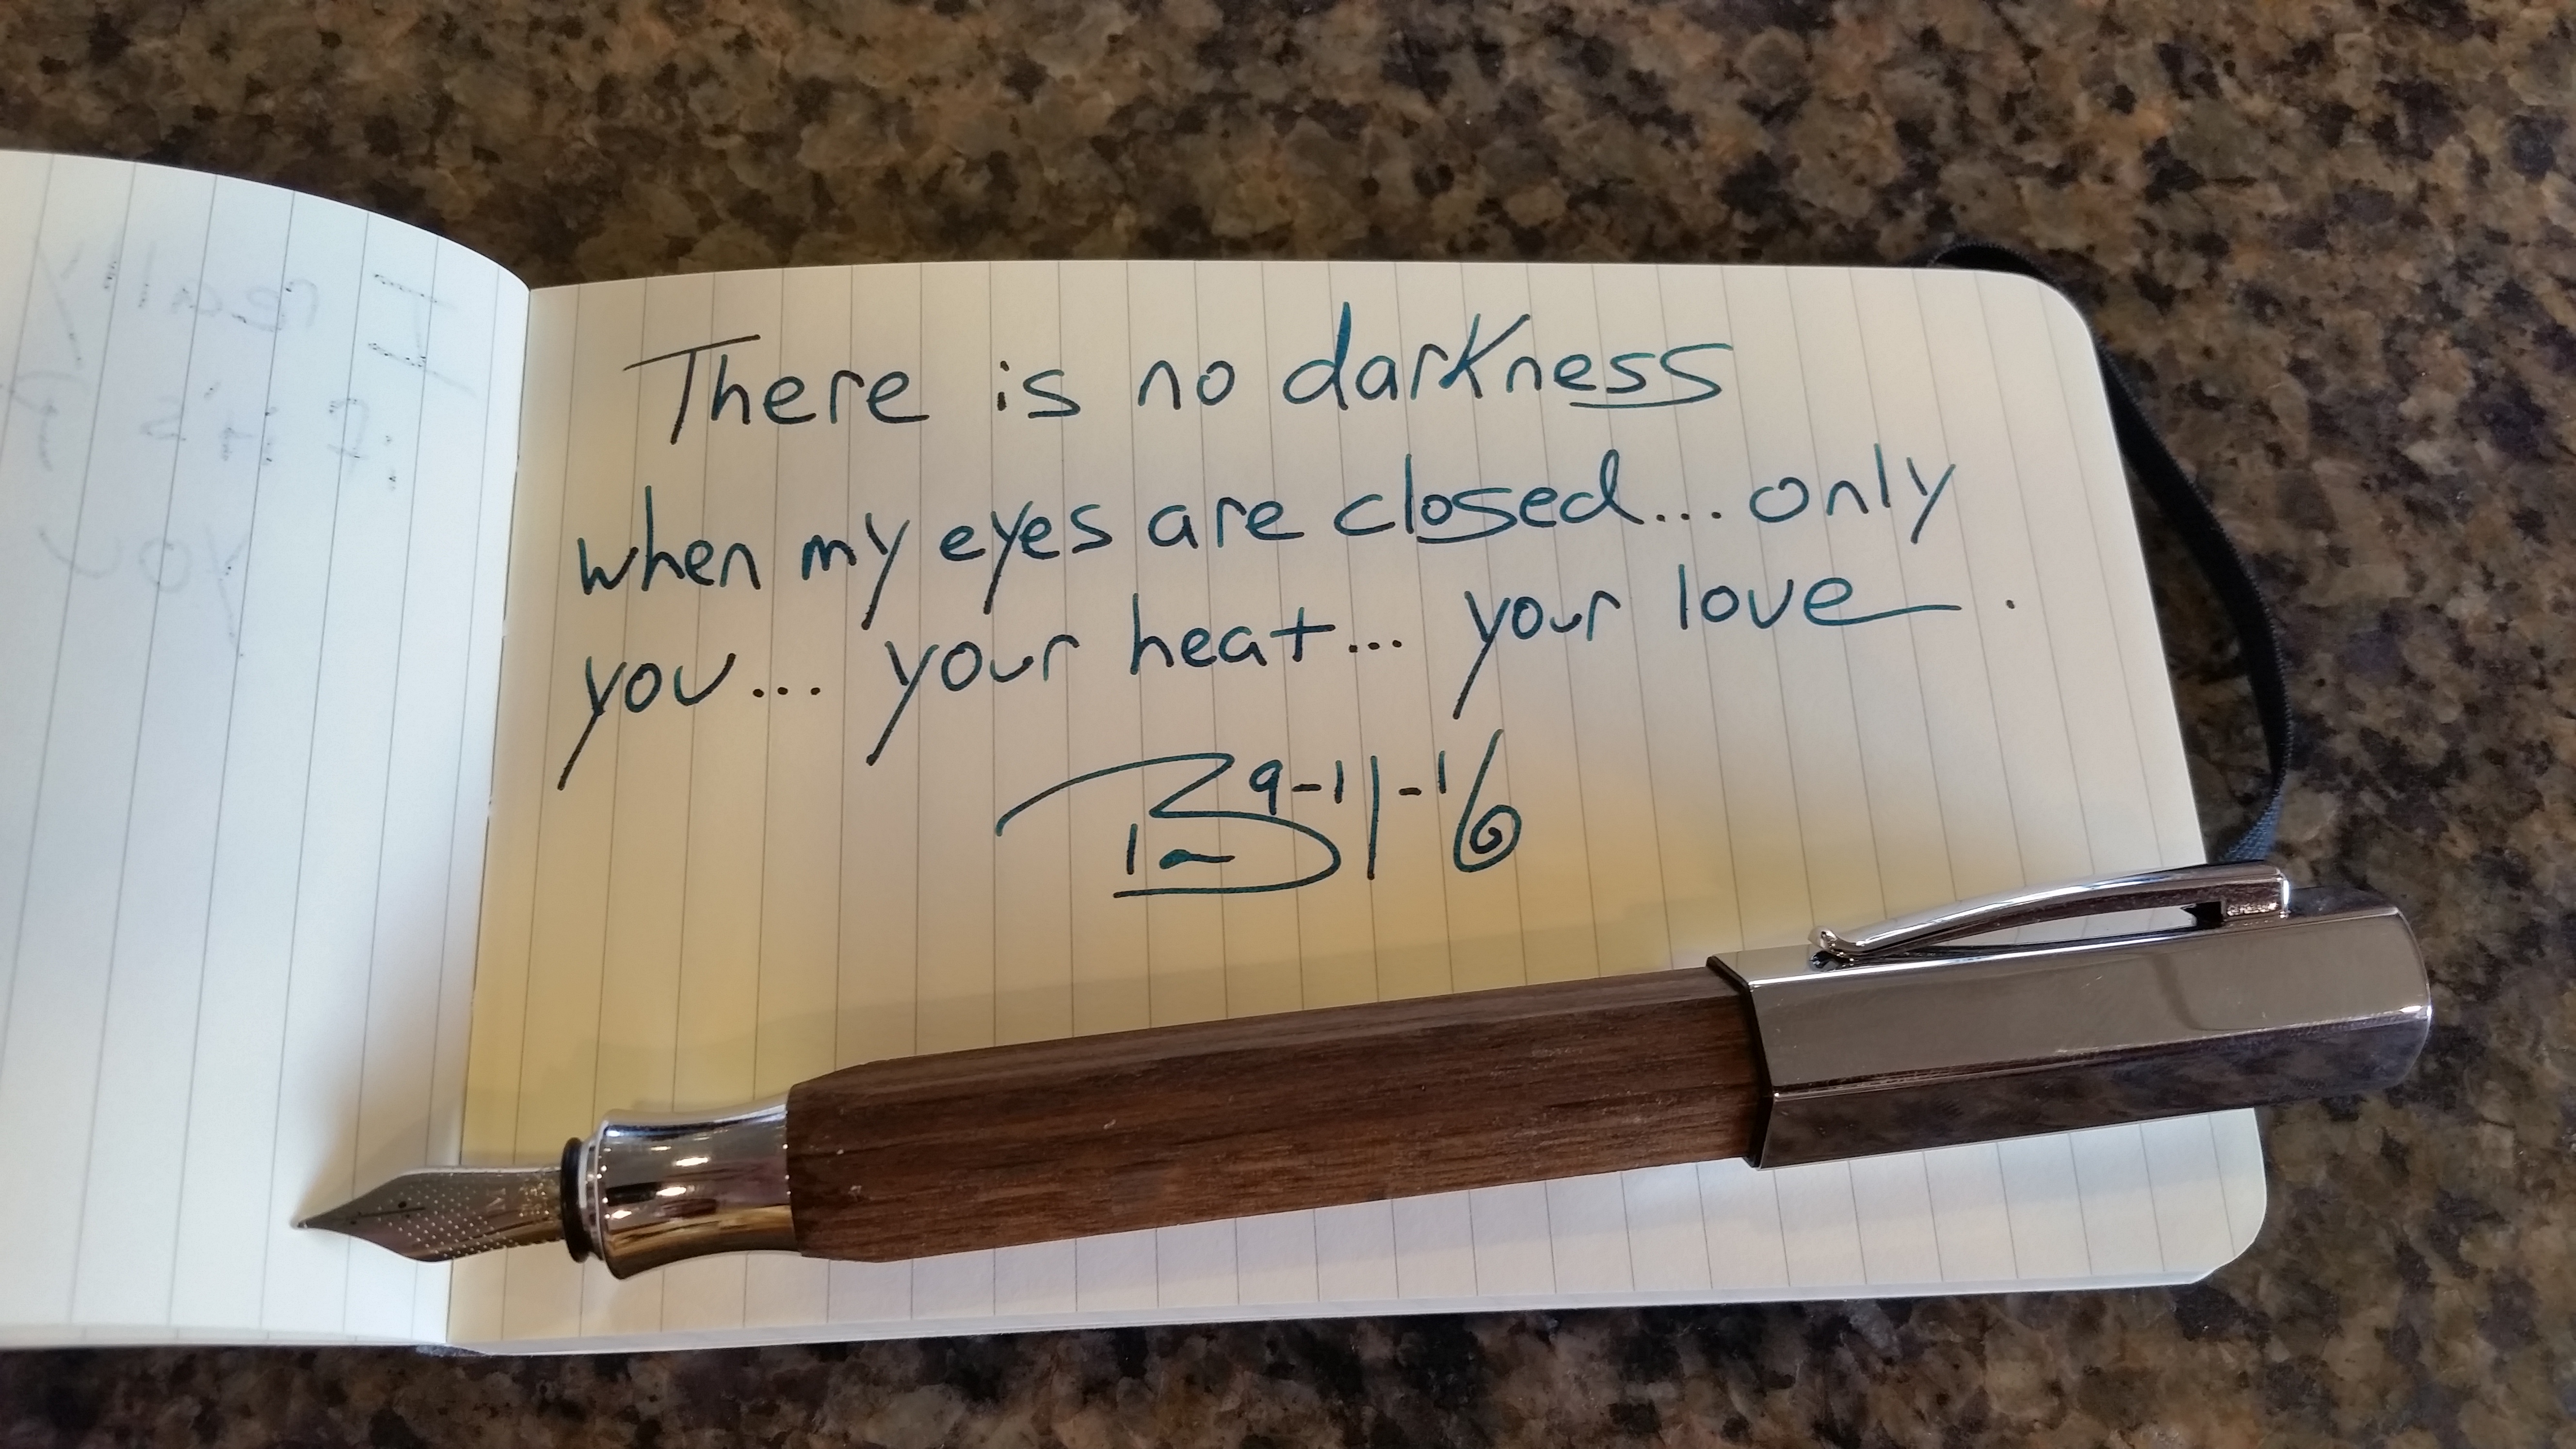 There is no darkness
when my eyes are closed... only
you... your heat... your love.
9-11-16